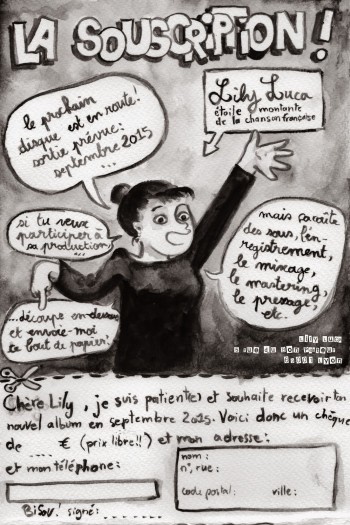 LA SOUSCRIPTION !
Lily Luca
étoile montante
de la chanson française
le prochain
disque est en route!
sortie prévue:
septembre 2015
...
si tu veux
participer à
sa production,
mais ça coûte
des sous, l'en-
registrement,
le mixage,
le mastering,
le pressage,
etc.
...découpe en-dessous
et envoie-moi
le bout de papier!
Lily Luca
Lyon
Chère Lily, je suis patient(e) et souhaite recevoir ton
nouvel album en septembre 2015. Voici donc un chèque
de .... € (prix libre!!) et mon adresse:
et mon téléphone:
nom:
n°, rue:
code postal: ville:
Bisou! signé: ........